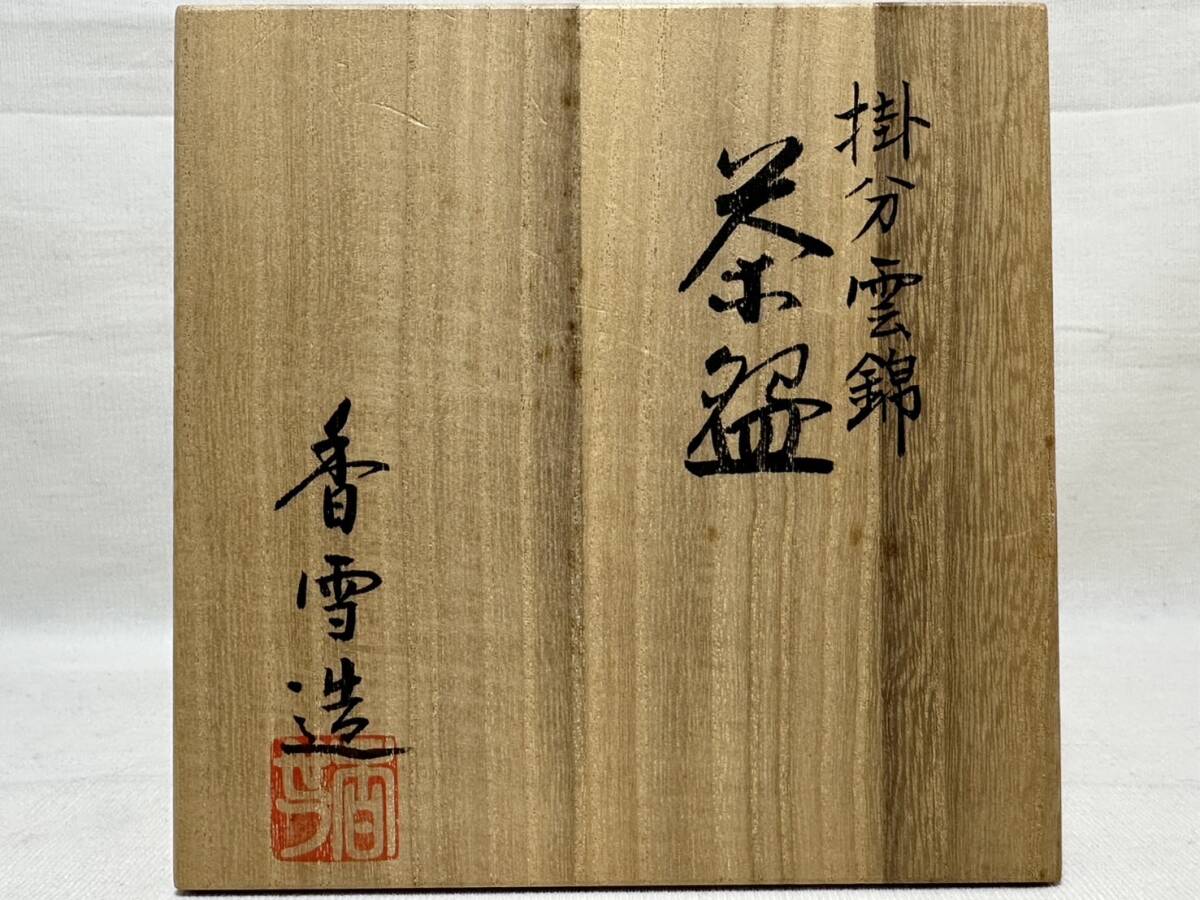 掛分雲錦
茶盌
香雪造